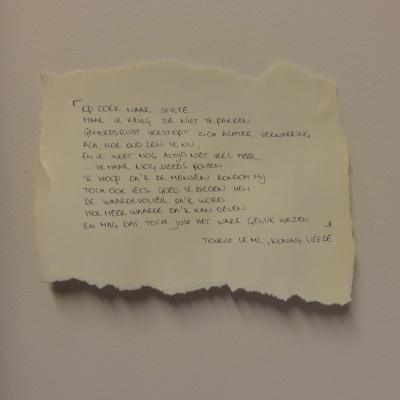 「OP ZOEK NAAR STILTE ...
MAAR IK KRIJG ZE NIET TE PAKKEN
GEMOEDSRUST VERSTOPT ZICH ACHTER VERWARRING
ACH, HOE OUD BEN IK NU,
EN IK WEET NOG ALTIJD NIET VEEL MEER
... IK MAAK NOG STEEDS FOUTEN ...
'K HOOP DA'K DE MENSEN RONDOM MIJ
TOCH OOK IETS GOED TE BIEDEN HEB
DE WAARDEVOLLER DA'K WORD
HOE MEER WAARDE DA'K KAN DELEN
EN MAG DAT TOCH JUST HET WARE GELUK WEZEN 」
TOURIST LE MC, KONING LIEFDE